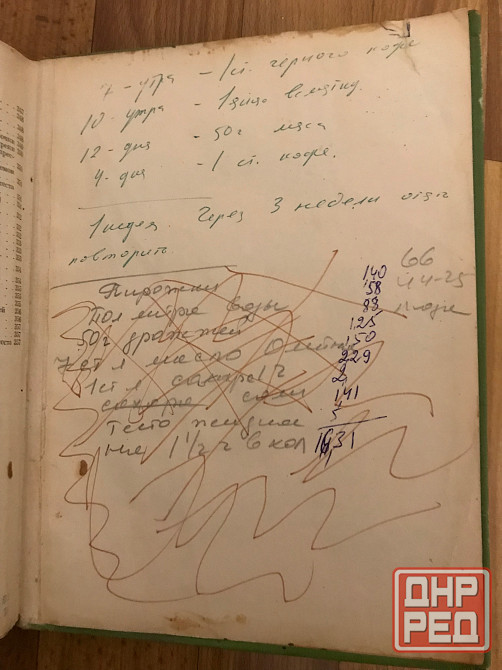 7 - утра - 1 ст. черного кофе
10 - утра - 1 яйцо всмятку.
12 - дня - 50 г мяса
4 - дня - 1 ст. кофе.
1 недел. Через 3 недели опять
повторить
Пирожки
Пол литра воды
50 г дрожжей
7 ст л масло Олейна
1 ст л сахара 1 ч
сахара соли
Тесто жидкое
1 1/2 ч в хол
140
58
83
125
150
229
141
1631
66
44-25
ДНР
РЕД